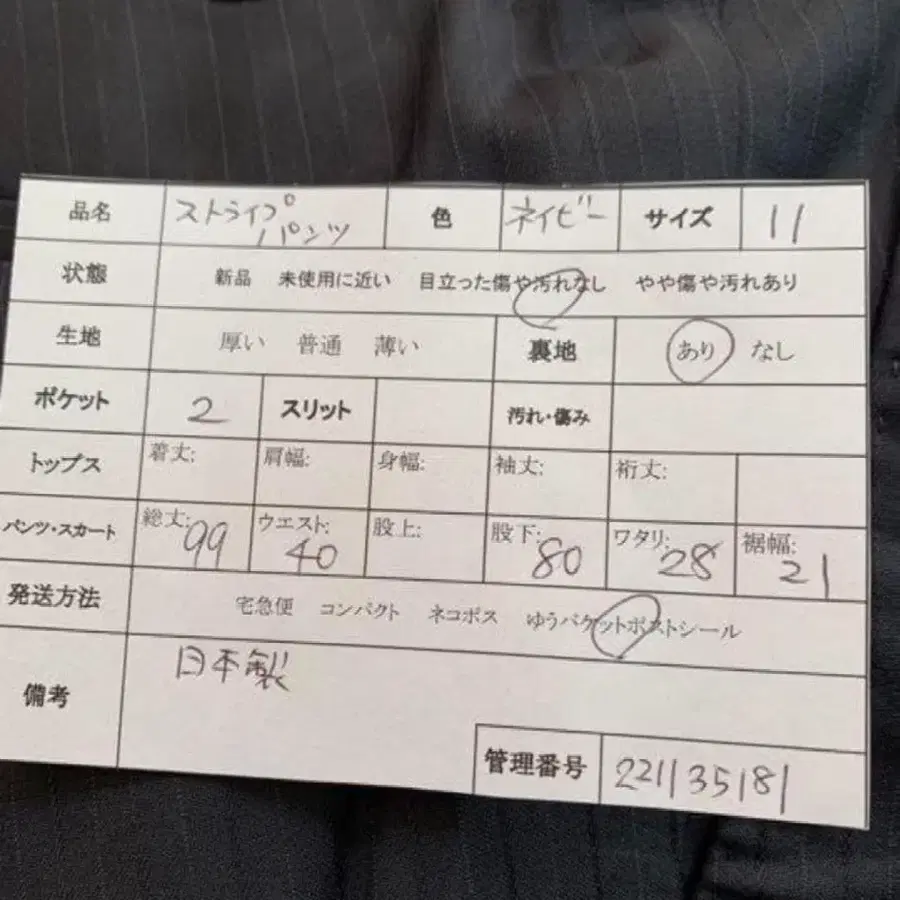 品名 ストライプ パンツ 色 ネイビー サイズ 11
状態 新品 未使用に近い 目立った傷や汚れなし やや傷や汚れあり
生地 厚い 普通 薄い 裏地 あり なし
ポケット 2 スリット 汚れ・傷み
トップス 着丈: 肩幅: 身幅: 袖丈: 裄丈:
パンツ・スカート 総丈: 99 ウエスト: 40 股上: 股下: 80 ワタリ: 28 裾幅: 21
発送方法 宅急便 コンパクト ネコポス ゆうパケットポストシール
備考 日本製
管理番号 221135181